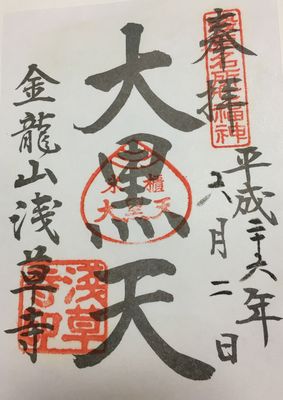 奉拝
浅草名所七福神
平成二十六年
六月二日
大黒天
米櫃
大黒天
金龍山浅草寺
浅草
寺印